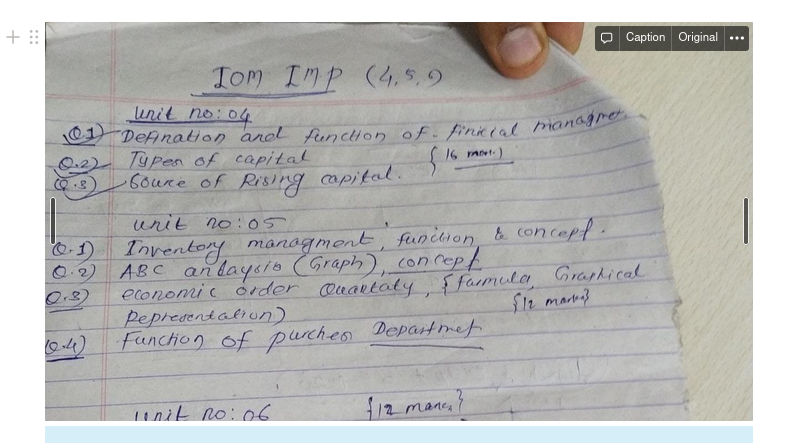 Caption Original
IOM IMP (4,5,6)
unit no: 04
Q.1) Defination and function of finicial managmet.
Q.2) Types of capital {16 mark.}
Q.3) Source of Rising capital.
unit no: 05
Q.1) Inventory managment, function & concept.
Q.2) ABC anlaysis (Graph), concept
Q.3) economic order Quantaty, {farmula, Graphical
Representation) {12 marks}
Q.4) Function of purches Departmet
unit no: 06 {12 marks}